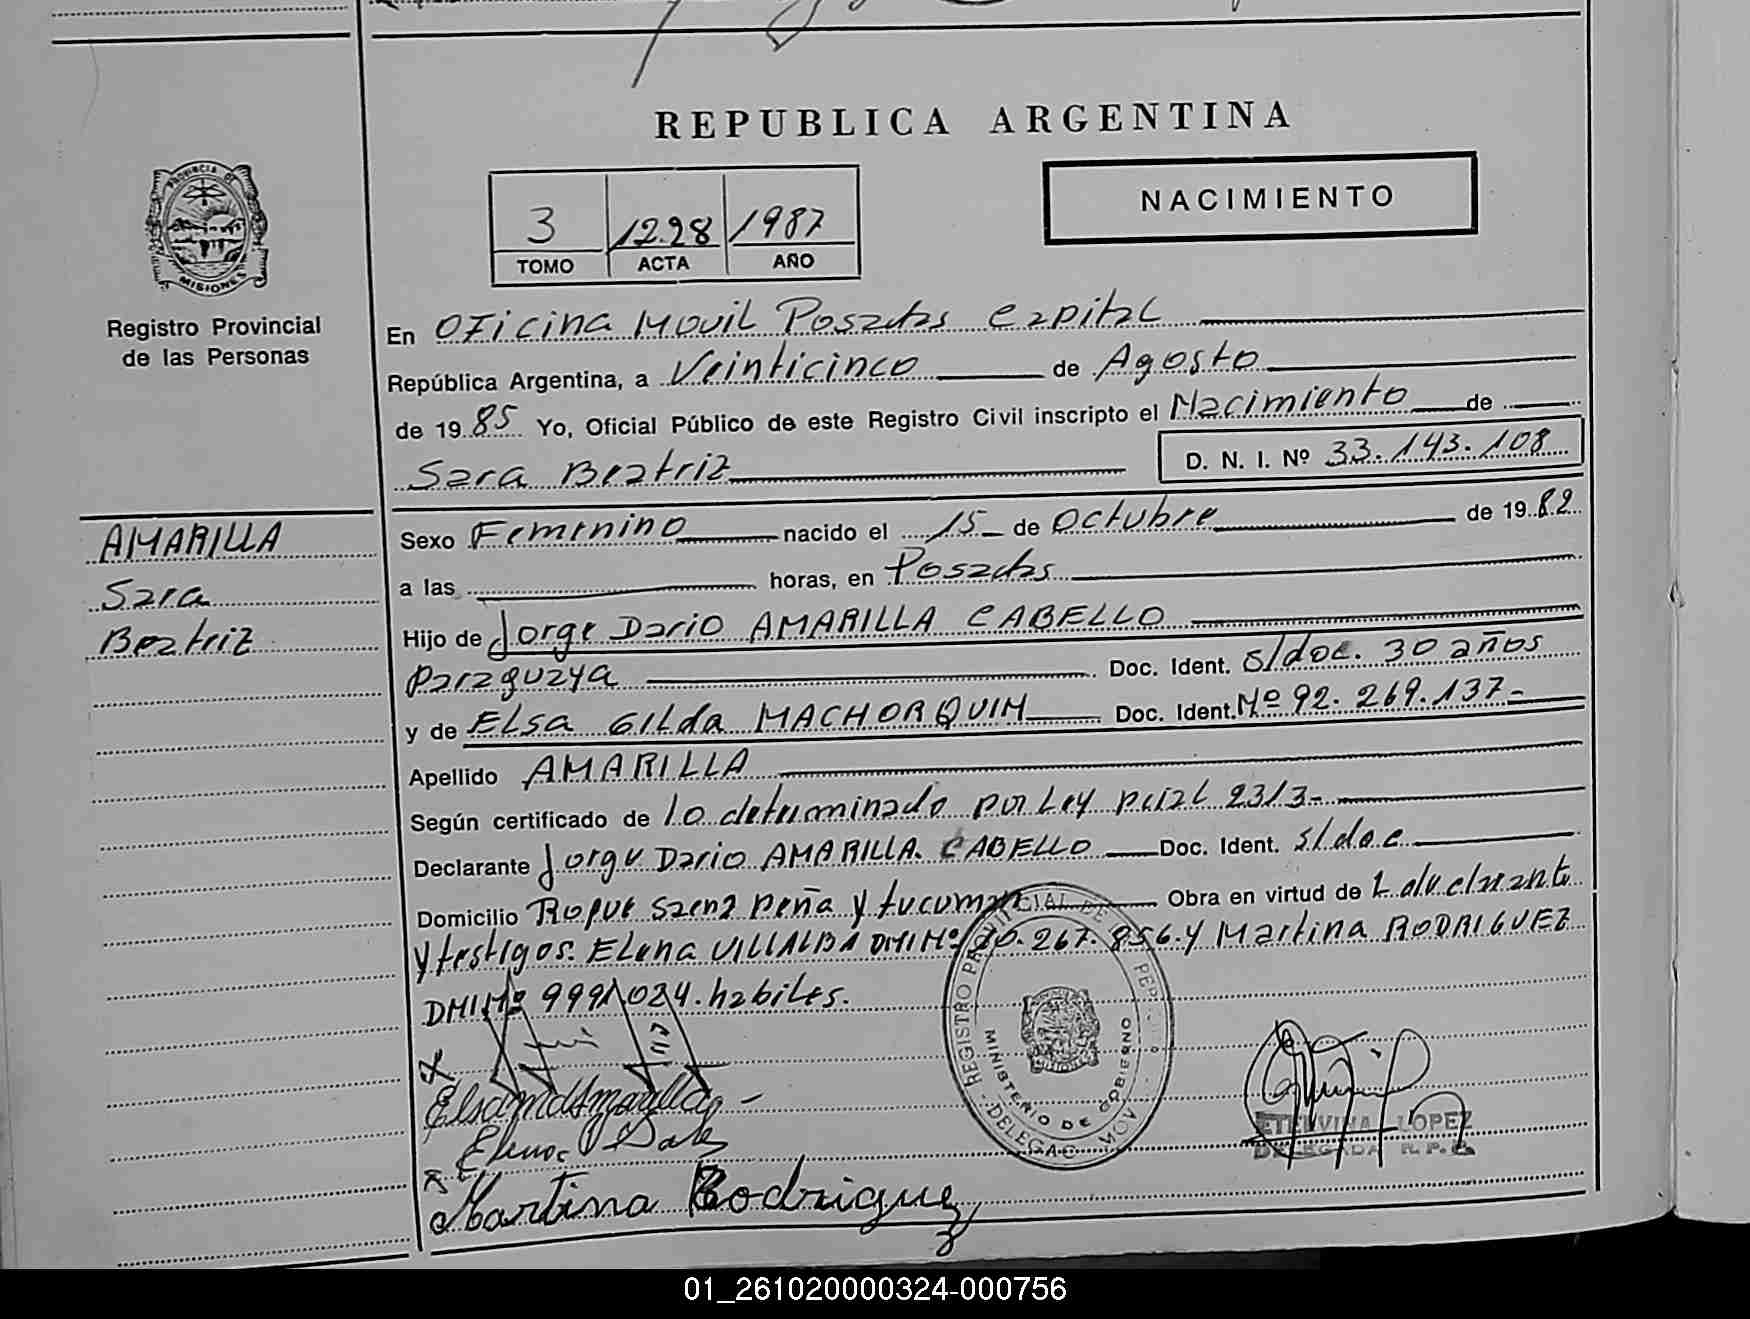 REPUBLICA ARGENTINA
PROVINCIA DE
MISIONES
Registro Provincial
de las Personas
3 12.28 1987
TOMO ACTA AÑO
NACIMIENTO
En Oficina Movil Posadas capital
República Argentina, a Veinticinco de Agosto
de 1985 Yo, Oficial Público de este Registro Civil inscripto el Nacimiento de
Sara Beatriz D. N. I. Nº 33.143.108
AMARILLA
Sara
Beatriz
Sexo Femenino nacido el 15 de Octubre de 1982
a las horas, en Posadas
Hijo de Jorge Dario AMARILLA CABELLO
Paraguaya Doc. Ident. s/doc. 30 años
y de ELsa GILda MACHORQUIM Doc. Ident. Nº 92.269.137-
Apellido AMARILLA
Según certificado de lo determinado por Ley pcial 2313-
Declarante Jorge Dario AMARILLA CABELLO Doc. Ident. s/doc
Domicilio Roque Saenz Peña y tucuman Obra en virtud de L declarante
y testigos: ELena VILLALBA DNI Nº 267.856 y Martina RODRIGUEZ
DNI Nº 9991024. habiles.
REGISTRO PROVINCIAL DE
MINISTERIO DE GOBIERNO
ETELVINA LOPEZ
DELEGADA R.P.P.
Martina Rodriguez
01_261020000324-000756